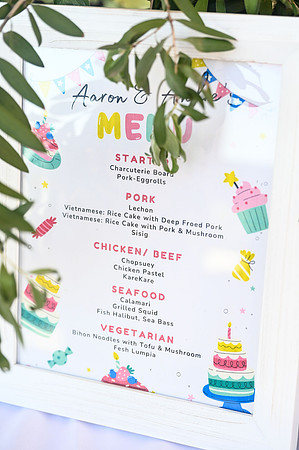 Aaron &
MENU
START
Charcuterie Board
Pork-Eggrolls
PORK
Lechon
Vietnamese: Rice Cake with Deep Froed Pork
Vietnamese: Rice Cake with Pork & Mushroom
Sisig
CHICKEN/ BEEF
Chopsuey
Chicken Pastel
KareKare
SEAFOOD
Calamari
Grilled Squid
Fish Halibut, Sea Bass
VEGETARIAN
Bihon Noodles with Tofu & Mushroom
Fesh Lumpia